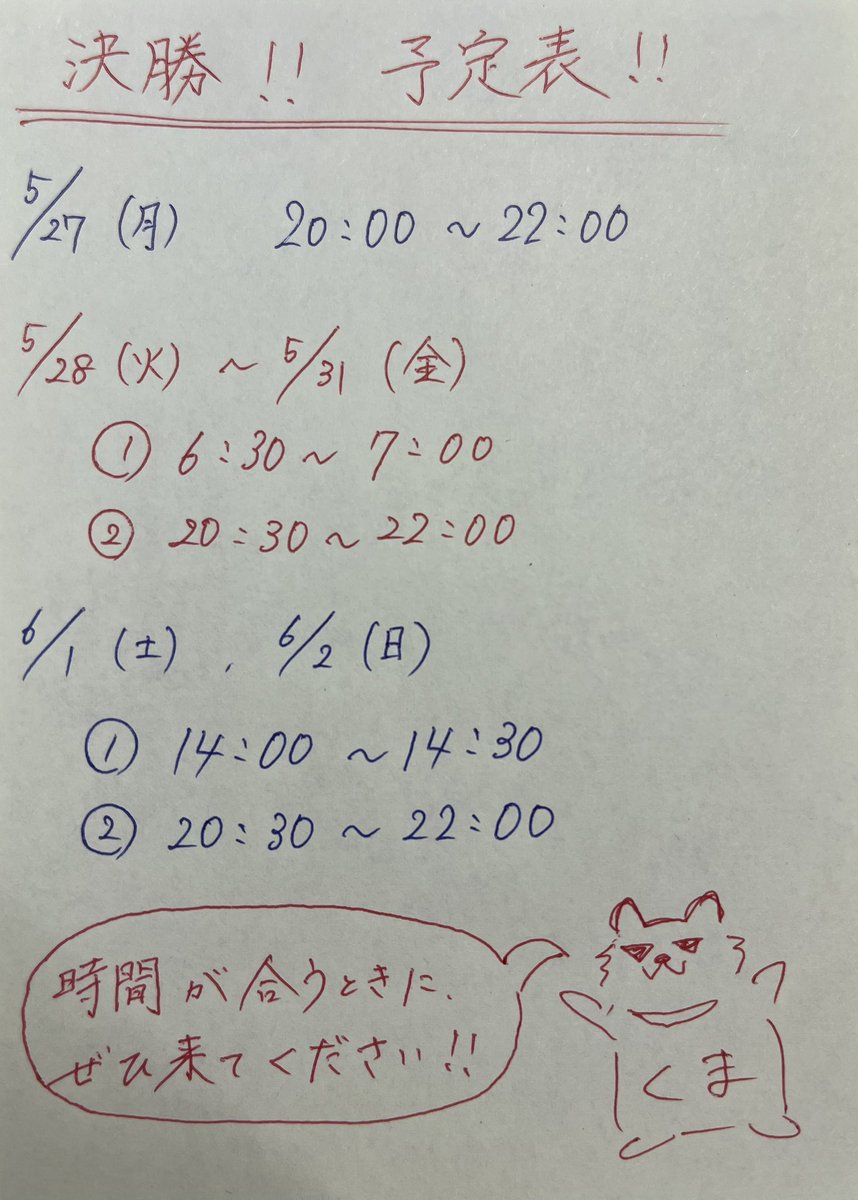 決勝!! 予定表!!
5/27 (月) 20:00 ~ 22:00
5/28 (火) ~ 5/31 (金)
① 6:30 ~ 7:00
② 20:30 ~ 22:00
6/1 (土) . 6/2 (日)
① 14:00 ~ 14:30
② 20:30 ~ 22:00
時間が合うときに、
ぜひ来てください!!
くま